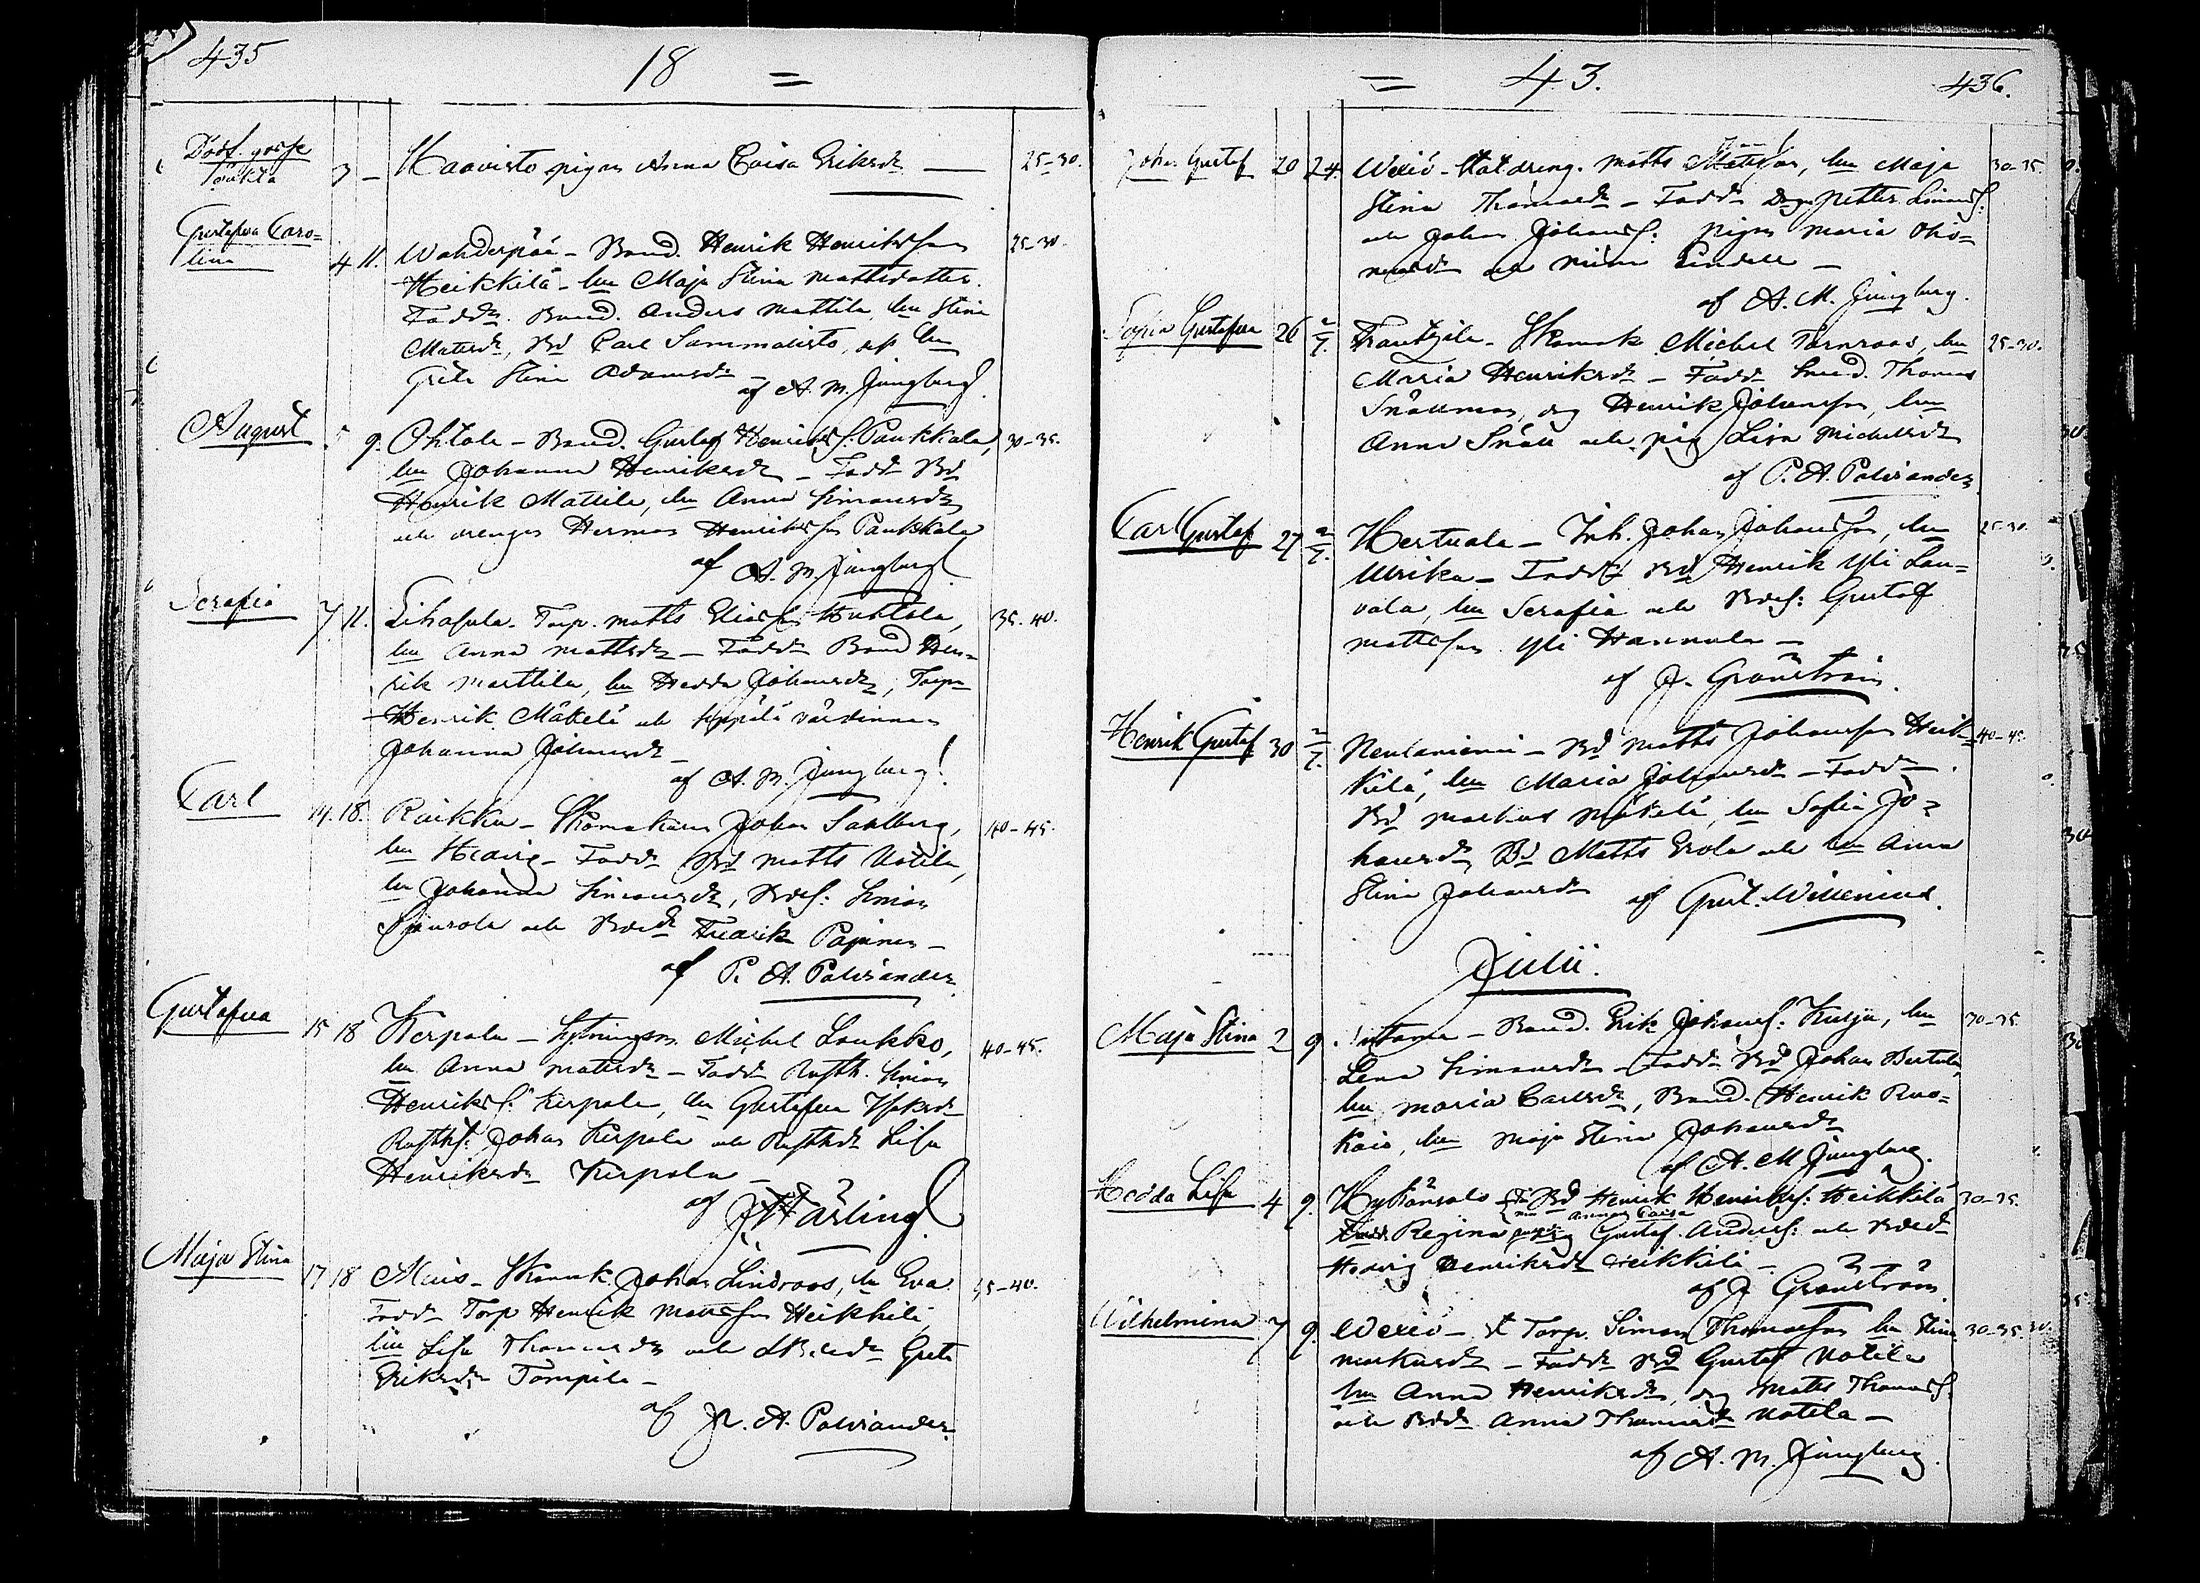 435
18 =
Dödf. gosse
oäkta 3 – Haavisto pigan Anna Caisa Eriksdr — 25–30.
Gustafva Caro=
lina 4 11. Wahderpää – Bond. Henrik Henriksson 25–30.
Heikkilä – hu Maja Stina Mattsdotter.
Faddr. Bond. Anders Mattila hu Stina
Mattsdr, Bd Carl Sammalisto, och hu
Greta Stina Adamsdr –
af A. M. Ljungberg.
August 5 9. Ohtola – Bond. Gustaf Henrikss: Paukkala, 30–35.
hu Johanna Henriksdr – Faddr Bd
Henrik Mattila, hu Anna Simonsdr
och drengen Herman Henriksson Paukkala
af A. M. Ljungberg
Serafia 7. 11. Lihasula. Torp. Matts Eliasson Huhtala, 35. 40.
hu Anna Mattsdr – Faddr Bond Hen=
rik Marttila, hu Hedda Johansdr, Torp
Henrik Mäkelä och Seppälä värdinnan
Johanna Johansdr –
af A. M. Ljungberg!
Carl 14. 18. Raikku – Skomakaren Johan Sahlberg, 40–45.
hu Hedvig – Faddr Bd Matts Uotila,
hu Johanna Simonsdr, Bdes: Simon
och Bdedr Fredrik Papinen –
af P. A. Palviander
Gustafva 15 18 Kerpola – Sytningsm Michel Loukko, 40–45.
hu Anna Mattsdr – Faddr Rusth. Simon
Henrikss: Kerpola, hu Gustafva Isaksdr
Rusths: Johan Kerpola och Rusthdr Lisa
Henriksdr Kerpola –
af J. Hårling
Maja Stina 17 18 Skomak. Johan Lindroos, hu Eva 35–40.
Faddr Torp Henrik Mattsson Heikkilä
hu Lisa Thomasdr och Greta
Eriksdr Tömpile –
af P. A. Palviander
= 43.
436.
Johan Gustaf 20 24. Wexiö – Statdreng. Matts Mattsson, hu Maja 30–35.
Stina Thomasdr – Faddr Dreng Petter Simonss:
och Johan Johanss: pigan Maria
och Mina Lindell –
af A. M. Ljungberg.
Sofia Gustafva 26 2/7. Frantsila – Skomak Michel Törnroos, hu 25–30.
Maria Henriksdr – Faddr Smed. Thomas
Snällman, dreng Henrik Johansson, hu
Anna Snäll och pig Lisa Michelsdr
af P. A. Palviander
Carl Gustaf 27 2/7. Hertuala – Inh. Johan Johansson, hu 25–30.
Ulrika – Faddr Bd Henrik Yli Lau=
vala, hu Serafia och Bdes: Gustaf
Mattsson Yli Hannula –
af J. Granström.
Henrik Gustaf 30 2/7. Neulaniemi – Bd Matts Johansson Heik= 40–45.
kilä, hu Maria Johansdr – Faddr
Bd Markus Mäkelä, hu Sofia Jo=
hansdr, Bd Matts Erola och hu Anna
Stina Johansdr
af Gust. Willenius.
Julii.
Maja Stina 2 9. – Bond. Erik Johanss: Kurju, hu 30–35.
Lena Simonsdr – Faddr Bd Johan Bertula
hu Maria Carlsdr, Bond. Henrik Ruo=
kois, hu Maja Stina Johansdr
af A. M Ljungberg.
Hedda Lisa 4 9. – Bd Henrik Henrikss: Heikkilä 30–35.
hu Anna Caisa
Regina Gustaf Anderss: och Bdedr
Hedvig Henriksdr Heikkilä –
af J. Granström.
Wilhelmina 7 9. Wexiö – Torp. Simon Thomasson hu Stina 30–35.
Markusdr – Faddr Bd Gustaf Uotila
hu Anna Henriksdr, dreng Matts Thomass:
och Bdedr Anna Thomasdr Uotila –
af A. M. Ljungberg.